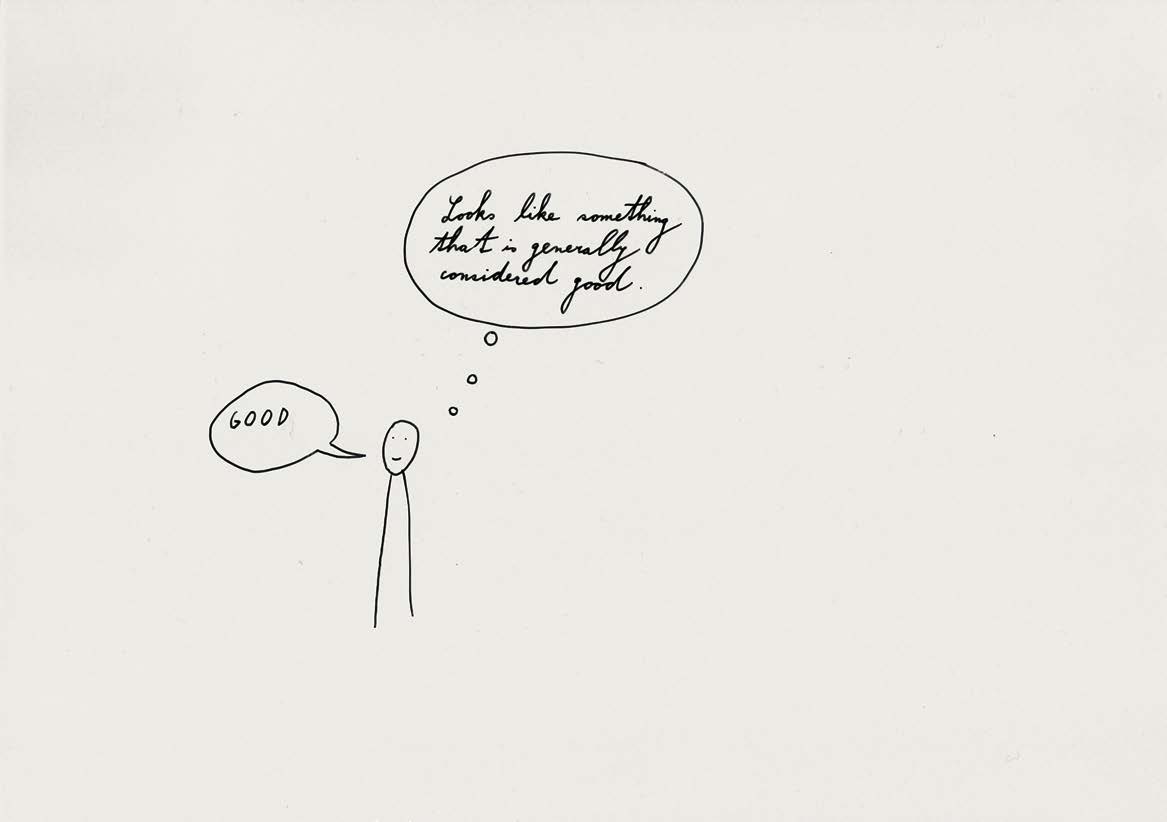 Looks like something
that is generally
considered good.
GOOD